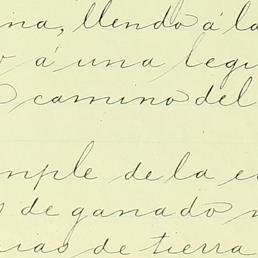 na, llendo á la
á una legu
camino del
mple de la e
s de ganado
ias de tierra